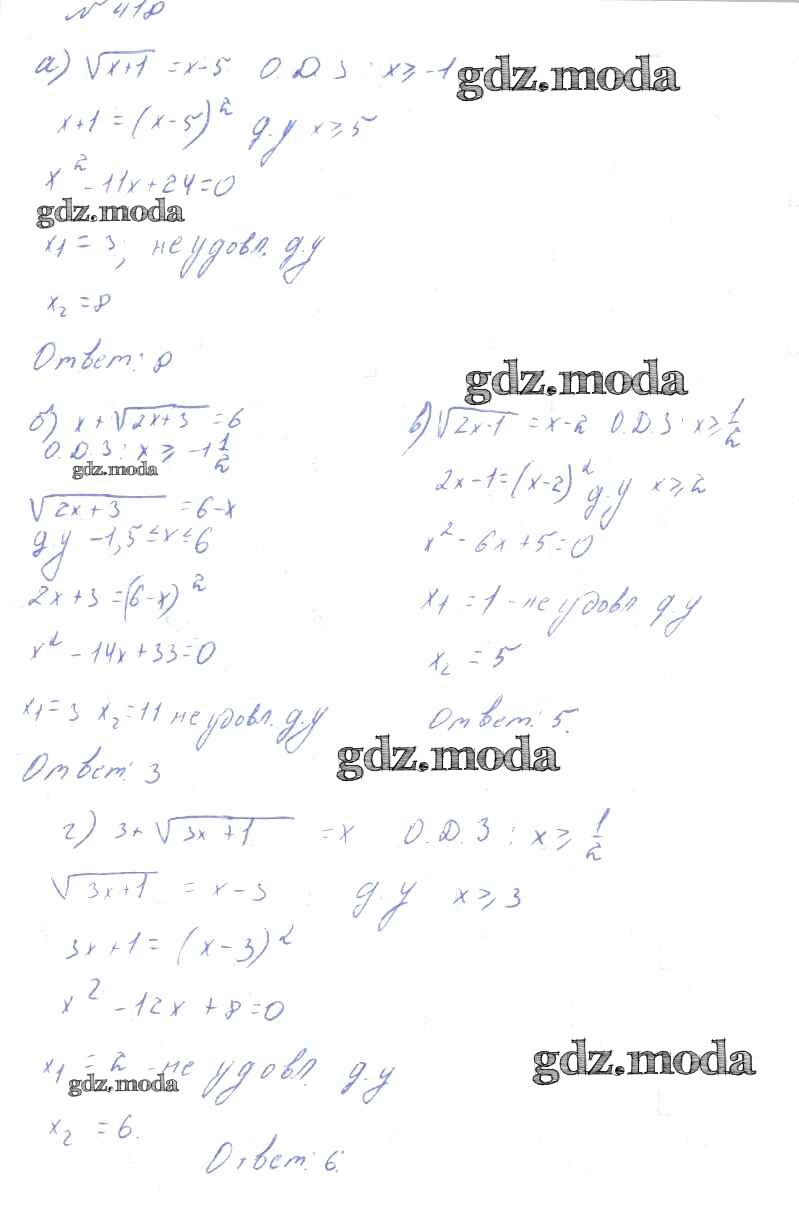 № 418
а) √x+1 = x-5 О.D.З : x ≥ -1
gdz.moda
x+1 = (x-5)² д.у x ≥ 5
x² - 11x + 24 = 0
gdz.moda
x₁ = 3; не удовл. д.у
x₂ = 8
Ответ: 8
gdz.moda
б) x + √2x+3 = 6
О.D.З : x ≥ -1 1/2
gdz.moda
√2x+3 = 6-x
д.у -1,5 ≤ x ≤ 6
2x+3 = (6-x)²
x² - 14x + 33 = 0
x₁ = 3 x₂ = 11 не удовл. д.у
Ответ: 3
в) √2x-1 = x-2 О.D.З : x ≥ 1/2
2x-1 = (x-2)² д.у x ≥ 2
x² - 6x + 5 = 0
x₁ = 1 - не удовл д.у
x₂ = 5
Ответ: 5.
gdz.moda
г) 3+ √3x+1 = x О.D.З : x ≥ 1/2
√3x+1 = x-3 д.у x ≥ 3
3x+1 = (x-3)²
x² - 12x + 8 = 0
gdz.moda
x₁ = 2 - не удовл. д.у
gdz.moda
x₂ = 6.
Ответ: 6.